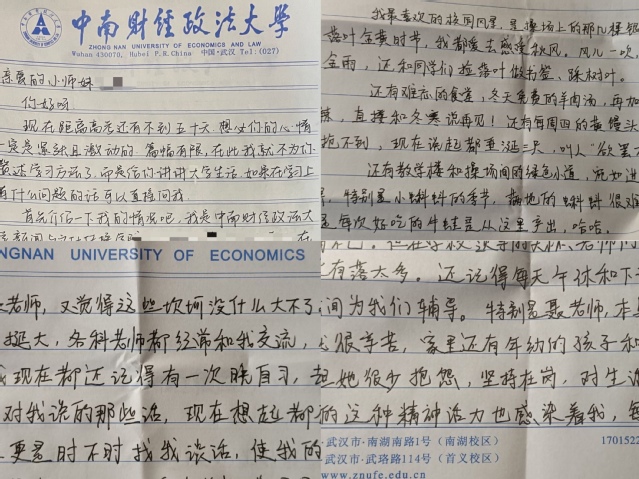 中南财经政法大学
ZHONG NAN UNIVERSITY OF ECONOMICS AND LAW
Wuhan 430070, Hubei P.R.China 中国·武汉 Tel:(027)
亲爱的小师妹
你好呀
现在距离高考还有不到五十天，想必你的心情
一定是紧张且激动的。篇幅有限，在此我就不为你
赘述学习方法了，而是给你讲讲大学生活，如果在学习上
有什么问题的话可以直接问我。
首先介绍一下我的情况吧，我是中南财经政法大
我最喜欢的校园风景，是操场上的那几棵银
落叶金黄的时节，我都爱去感受秋风，风儿一吹，
金雨，还和同学们捡落叶做书签、踩树叶。
还有难忘的食堂，冬天免费的羊肉汤，再加
辣，直接和冬寒说再见！还有每周四的黄馒头
抢不到，现在说起都垂涎三天，叫人"欲罢
还有教学楼和操场间的绿色小道，宛如进
特别是小蝌蚪的季节，
是每次好吃的牛蛙是从这里产出，哈哈。
NGNAN UNIVERSITY OF ECONOMICS
老师，又觉得这些坎坷没什么大不了
挺大，各科老师都经常和我交流，
我现在都还记得有一次晚自习，
对我说的那些话，现在想起都
更是时不时找我谈话，使我的
有落太多。还记得每天午休和下
间为我们辅导。特别是聂老师，本
很辛苦，家里还有年幼的孩子和
但她很少抱怨，坚持在岗，对生活
的这种精神活力也感染着我，每
武汉市·南湖南路1号（南湖校区）
1701522
武汉市·武珞路114号（首义校区）
www.znufe.edu.cn